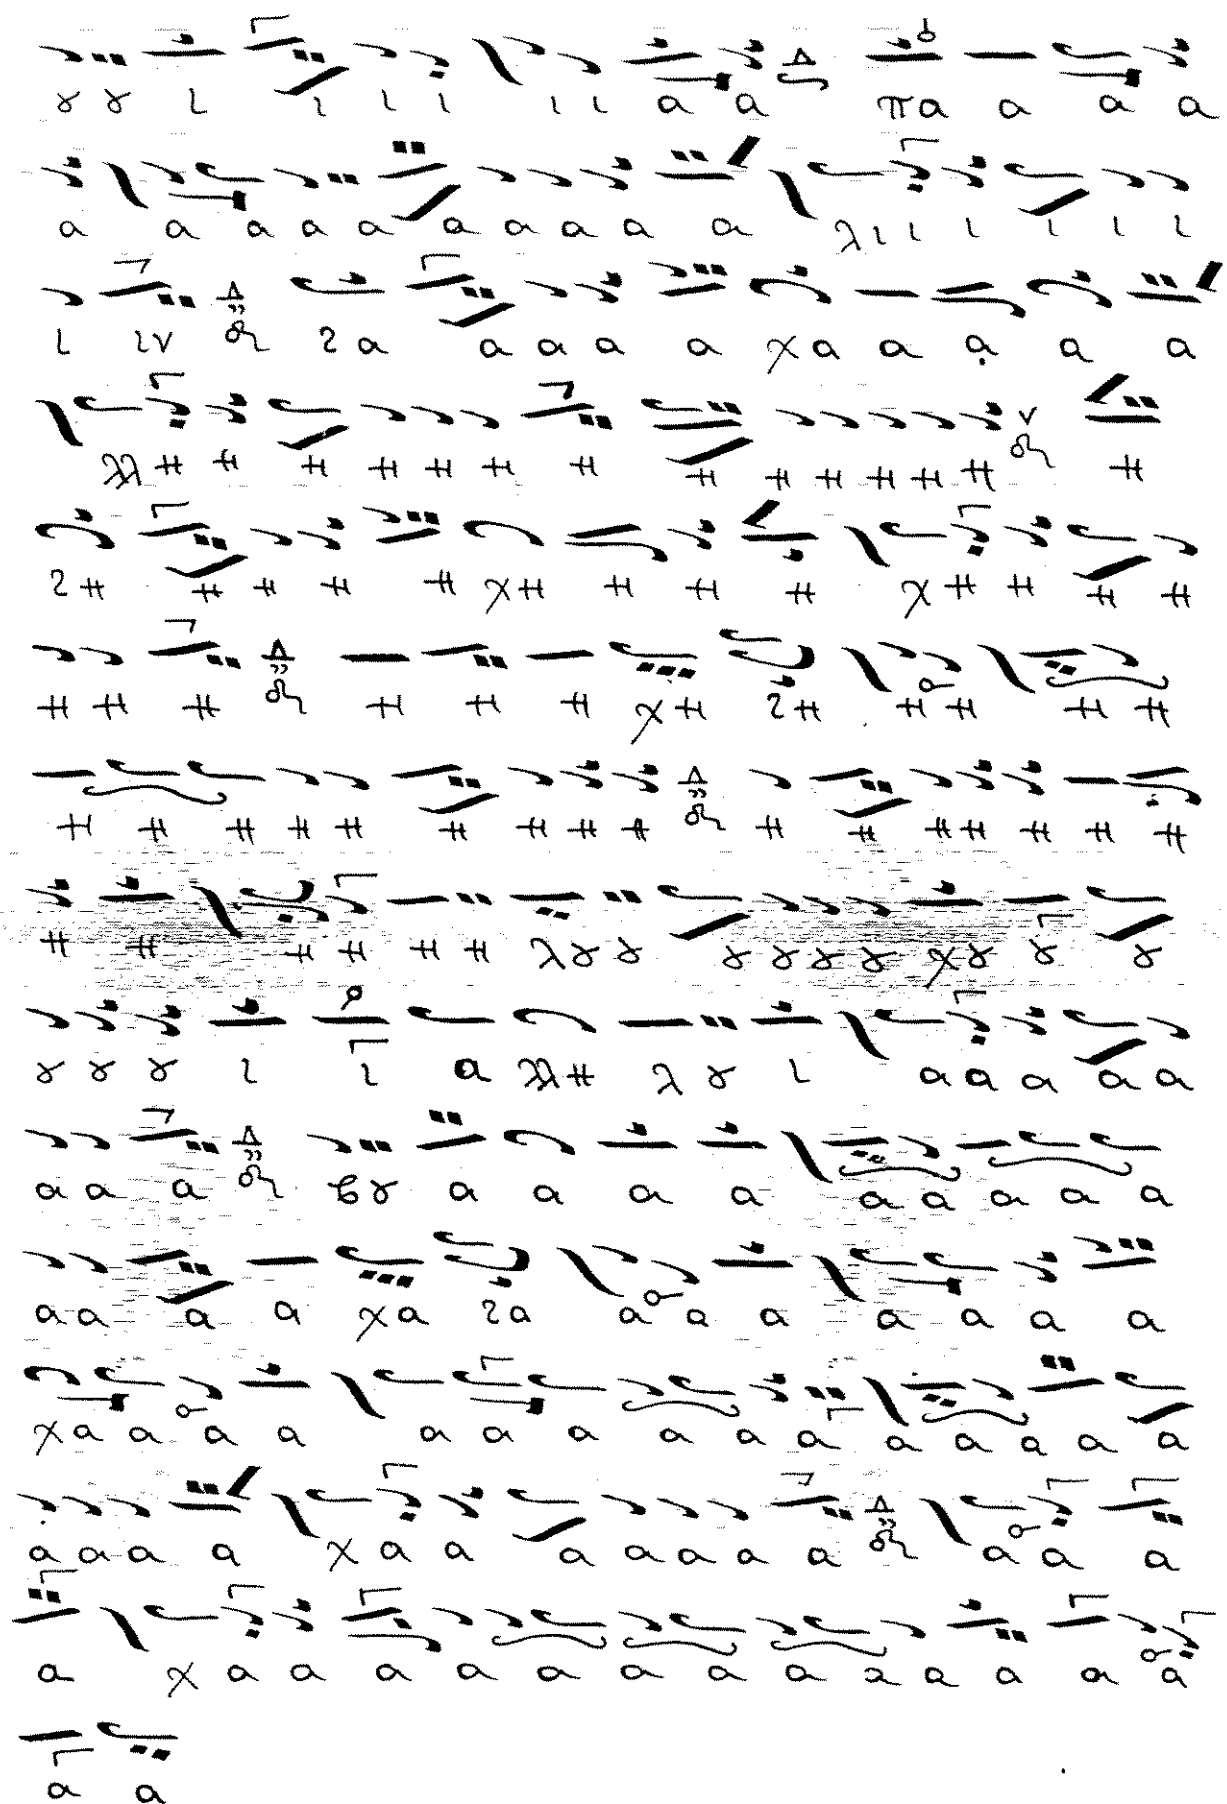 ȣ ȣ ι ι ι ι ι ι α α πα α α α
α α α α α α α α α α λι ι ι ι ι ι
ι ιν 2α α α α α χα α α α α
λλη η η η η η η η η η η η η η
2η η η η η χη η η η η χη η η η η
η η η η η η χη 2η η η η η
η η η η η η η η η η η η η η η η
η η η η η η λȣ ȣ ȣ ȣ ȣ ȣ χȣ ȣ ȣ
ȣ ȣ ȣ ι ι α λλη λ ȣ ι α α α α α
α α α βȣ α α α α α α α α α
α α α α χα 2α α α α α α α α
χα α α α α α α α α α α α α α α
α α α α χ α α α α α α α α α α
α χ α α α α α α α α α α α α α
α α